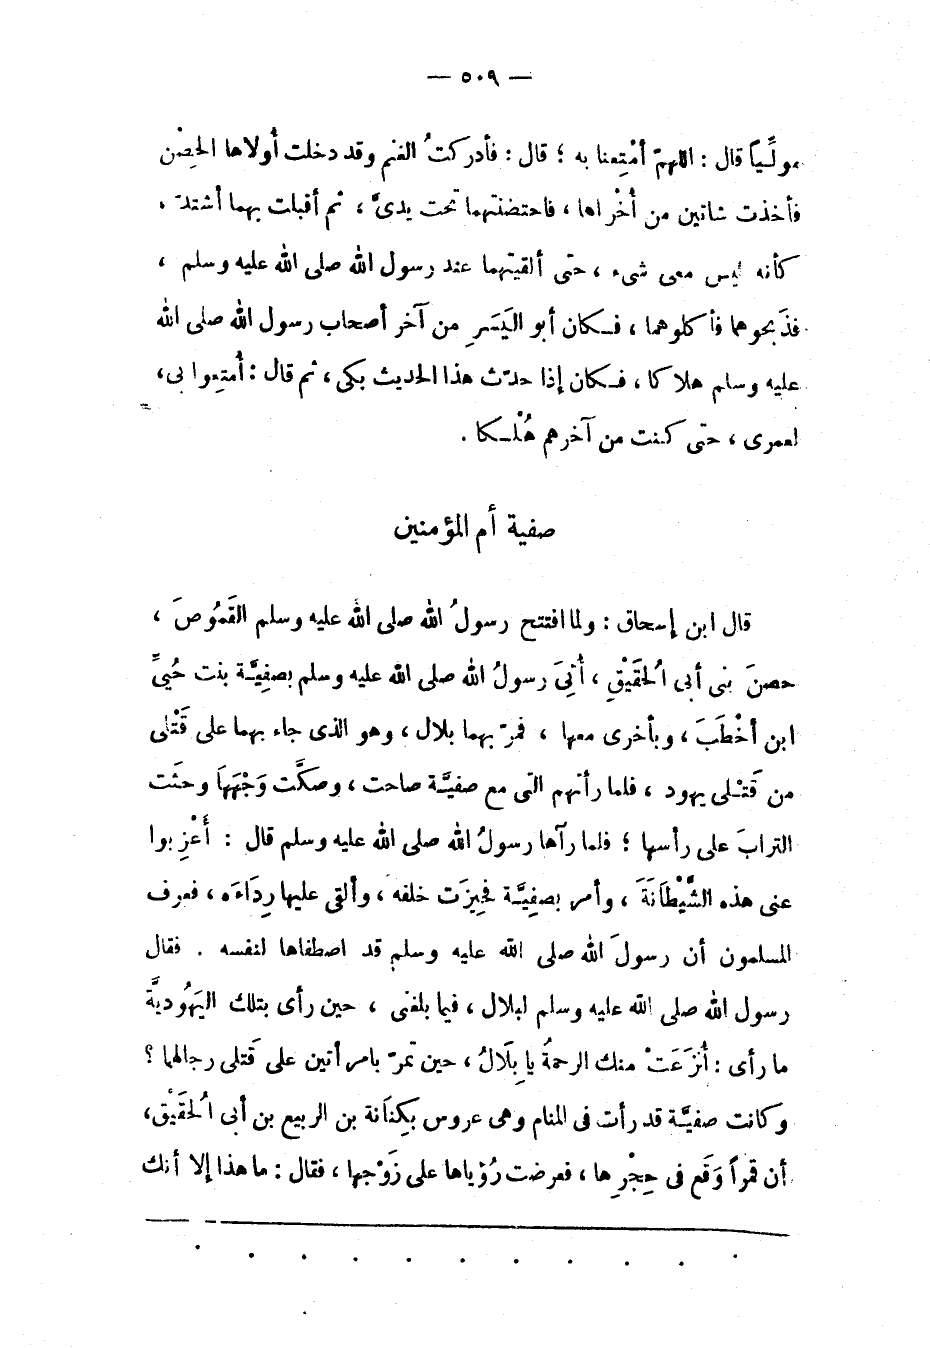 — ٥٠٩ —
مولِّياً قال : اللهمّ أمْتِعنا به ؛ قال : فأدركتُ الغنم وقد دخلت أُولاها الحِصْن
فأخذت شاتين من أُخْراها ، فاحتضنتهما تحت يدىّ ، ثم أقبلت بهما أشتدّ ،
كأنه ليس معى شىء ، حتى ألقيتهما عند رسول الله صلى الله عليه وسلم ،
فذَبحوهما فأكلوهما ، فكان أبو اليَسَرِ من آخر أصحاب رسول الله صلى الله
عليه وسلم هلاكا ، فكان إذا حدّث هذا الحديث بكى ، ثم قال : أُمتِعوا بى ،
لعمرى ، حتى كنت من آخرهم هُلْكا .
صفية أم المؤمنين
قال ابن إسحاق : ولما افتتح رسولُ الله صلى الله عليه وسلم القَمُوصَ ،
حصنَ بنى أبى الُحقَيْقِ ، أُتِىَ رسولُ الله صلى الله عليه وسلم بصفِيَّة بنت حُيىِّ
ابن أخْطَبَ ، وبأخرى معها ، فمرّ بهما بلال ، وهو الذى جاء بهما على قَتْلى
من قَتْلى يهود ، فلما رأتهم التى مع صفيَّة صاحت ، وصكَّت وَجْهَهَا وحثَت
الترابَ على رأسها ؛ فلما رآها رسولُ الله صلى الله عليه وسلم قال : أَعْزِبوا
عنى هذه الشَّيْطَانَةَ ، وأمر بصفِيَّة فحِيزَت خلفه ، وألقى عليها رِدَاءَه ، فعرف
المسلمون أن رسولَ الله صلى الله عليه وسلم قد اصطفاها لنفسه . فقال
رسول الله صلى الله عليه وسلم لبلال ، فيما بلغنى ، حين رأى بتلك اليَهُوديَّة
ما رأى : أنُزَعَتْ منك الرحمةُ يا بِلَالُ ، حين تمرّ بامرأتين على قَتلى رجالهما ؟
وكانت صفيَّة قد رأت فى المنام وهى عروس بكِنَانة بن الربيع بن أبى الُحقَيْق،
أن قمراً وَقَع فى حِجْرِها ، فعرضت رُؤياها على زَوْجها ، فقال : ما هذا إلا أنك